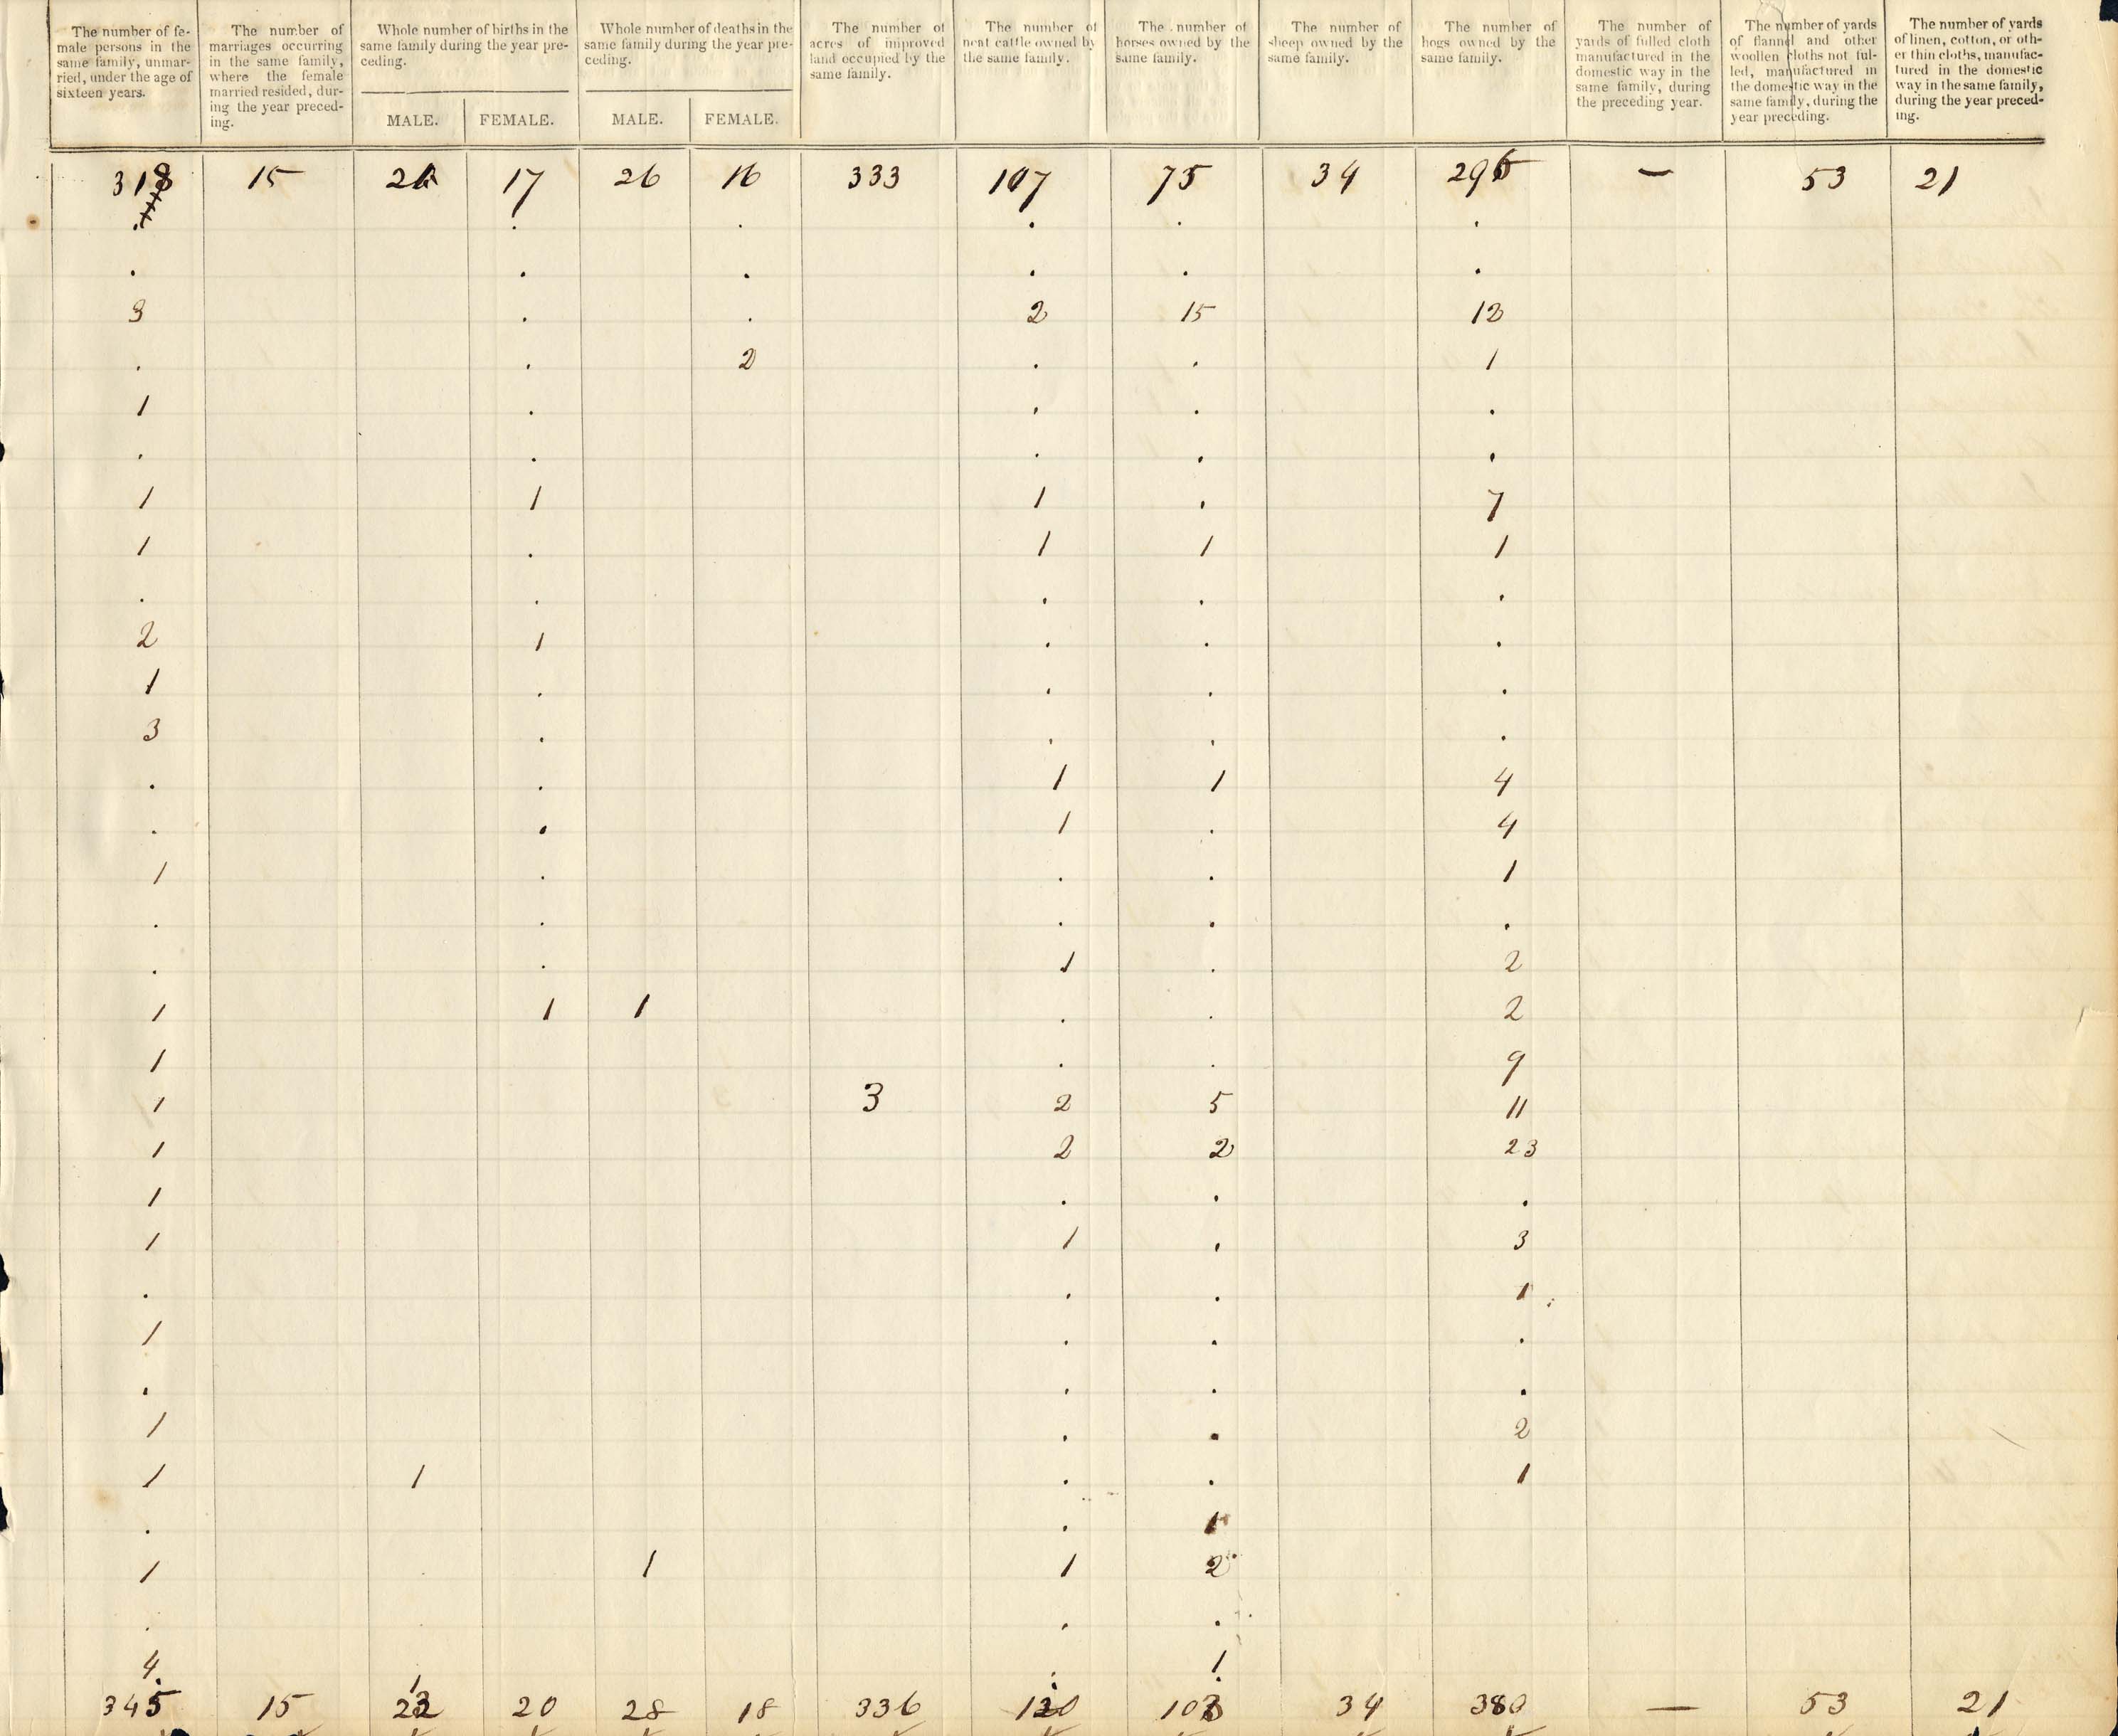 The number of fe-
male persons in the
same family, unmar-
ried, under the age of
sixteen years.
The number of
marriages occurring
in the same family,
where the female
married resided, dur-
ing the year preced-
ing.
Whole number of births in the
same family during the year pre-
ceding.
MALE. FEMALE.
Whole number of deaths in the
same family during the year pre-
ceding.
MALE. FEMALE.
The number of
acres of improved
land occupied by the
same family.
The number of
neat cattle owned by
the same family.
The number of
horses owned by the
same family.
The number of
sheep owned by the
same family.
The number of
hogs owned by the
same family.
The number of
yards of fulled cloth
manufactured in the
domestic way in the
same family, during
the preceding year.
The number of yards
of flannel and other
woollen cloths not ful-
led, manufactured in
the domestic way in the
same family, during the
year preceding.
The number of yards
of linen, cotton, or oth-
er thin cloths, manufac-
tured in the domestic
way in the same family,
during the year preced-
ing.
318 15 17 26 16 333 107 75 34 — 53 21
. . . . . .
. . . . . .
3 . . 2 15
. . 2 . . 1
1 . . . .
. . . . .
1 1 1 . 7
1 . 1 1 1
. . . . .
2 1 . . .
1 . . . .
3 . . . .
. . 1 1 4
. . 1 . 4
1 . . . 1
. . . . .
. . 1 . 2
1 1 1 . . 2
1 . . 9
1 3 2 5 11
1 2 2 23
1 . . .
1 1 . 3
. . . 1
1 . . .
. . . .
1 . . 2
1 1 . . 1
. . 1
1 1 1 2
. . .
4 1 . 1
345 15 20 28 18 336 34 380 — 53 21